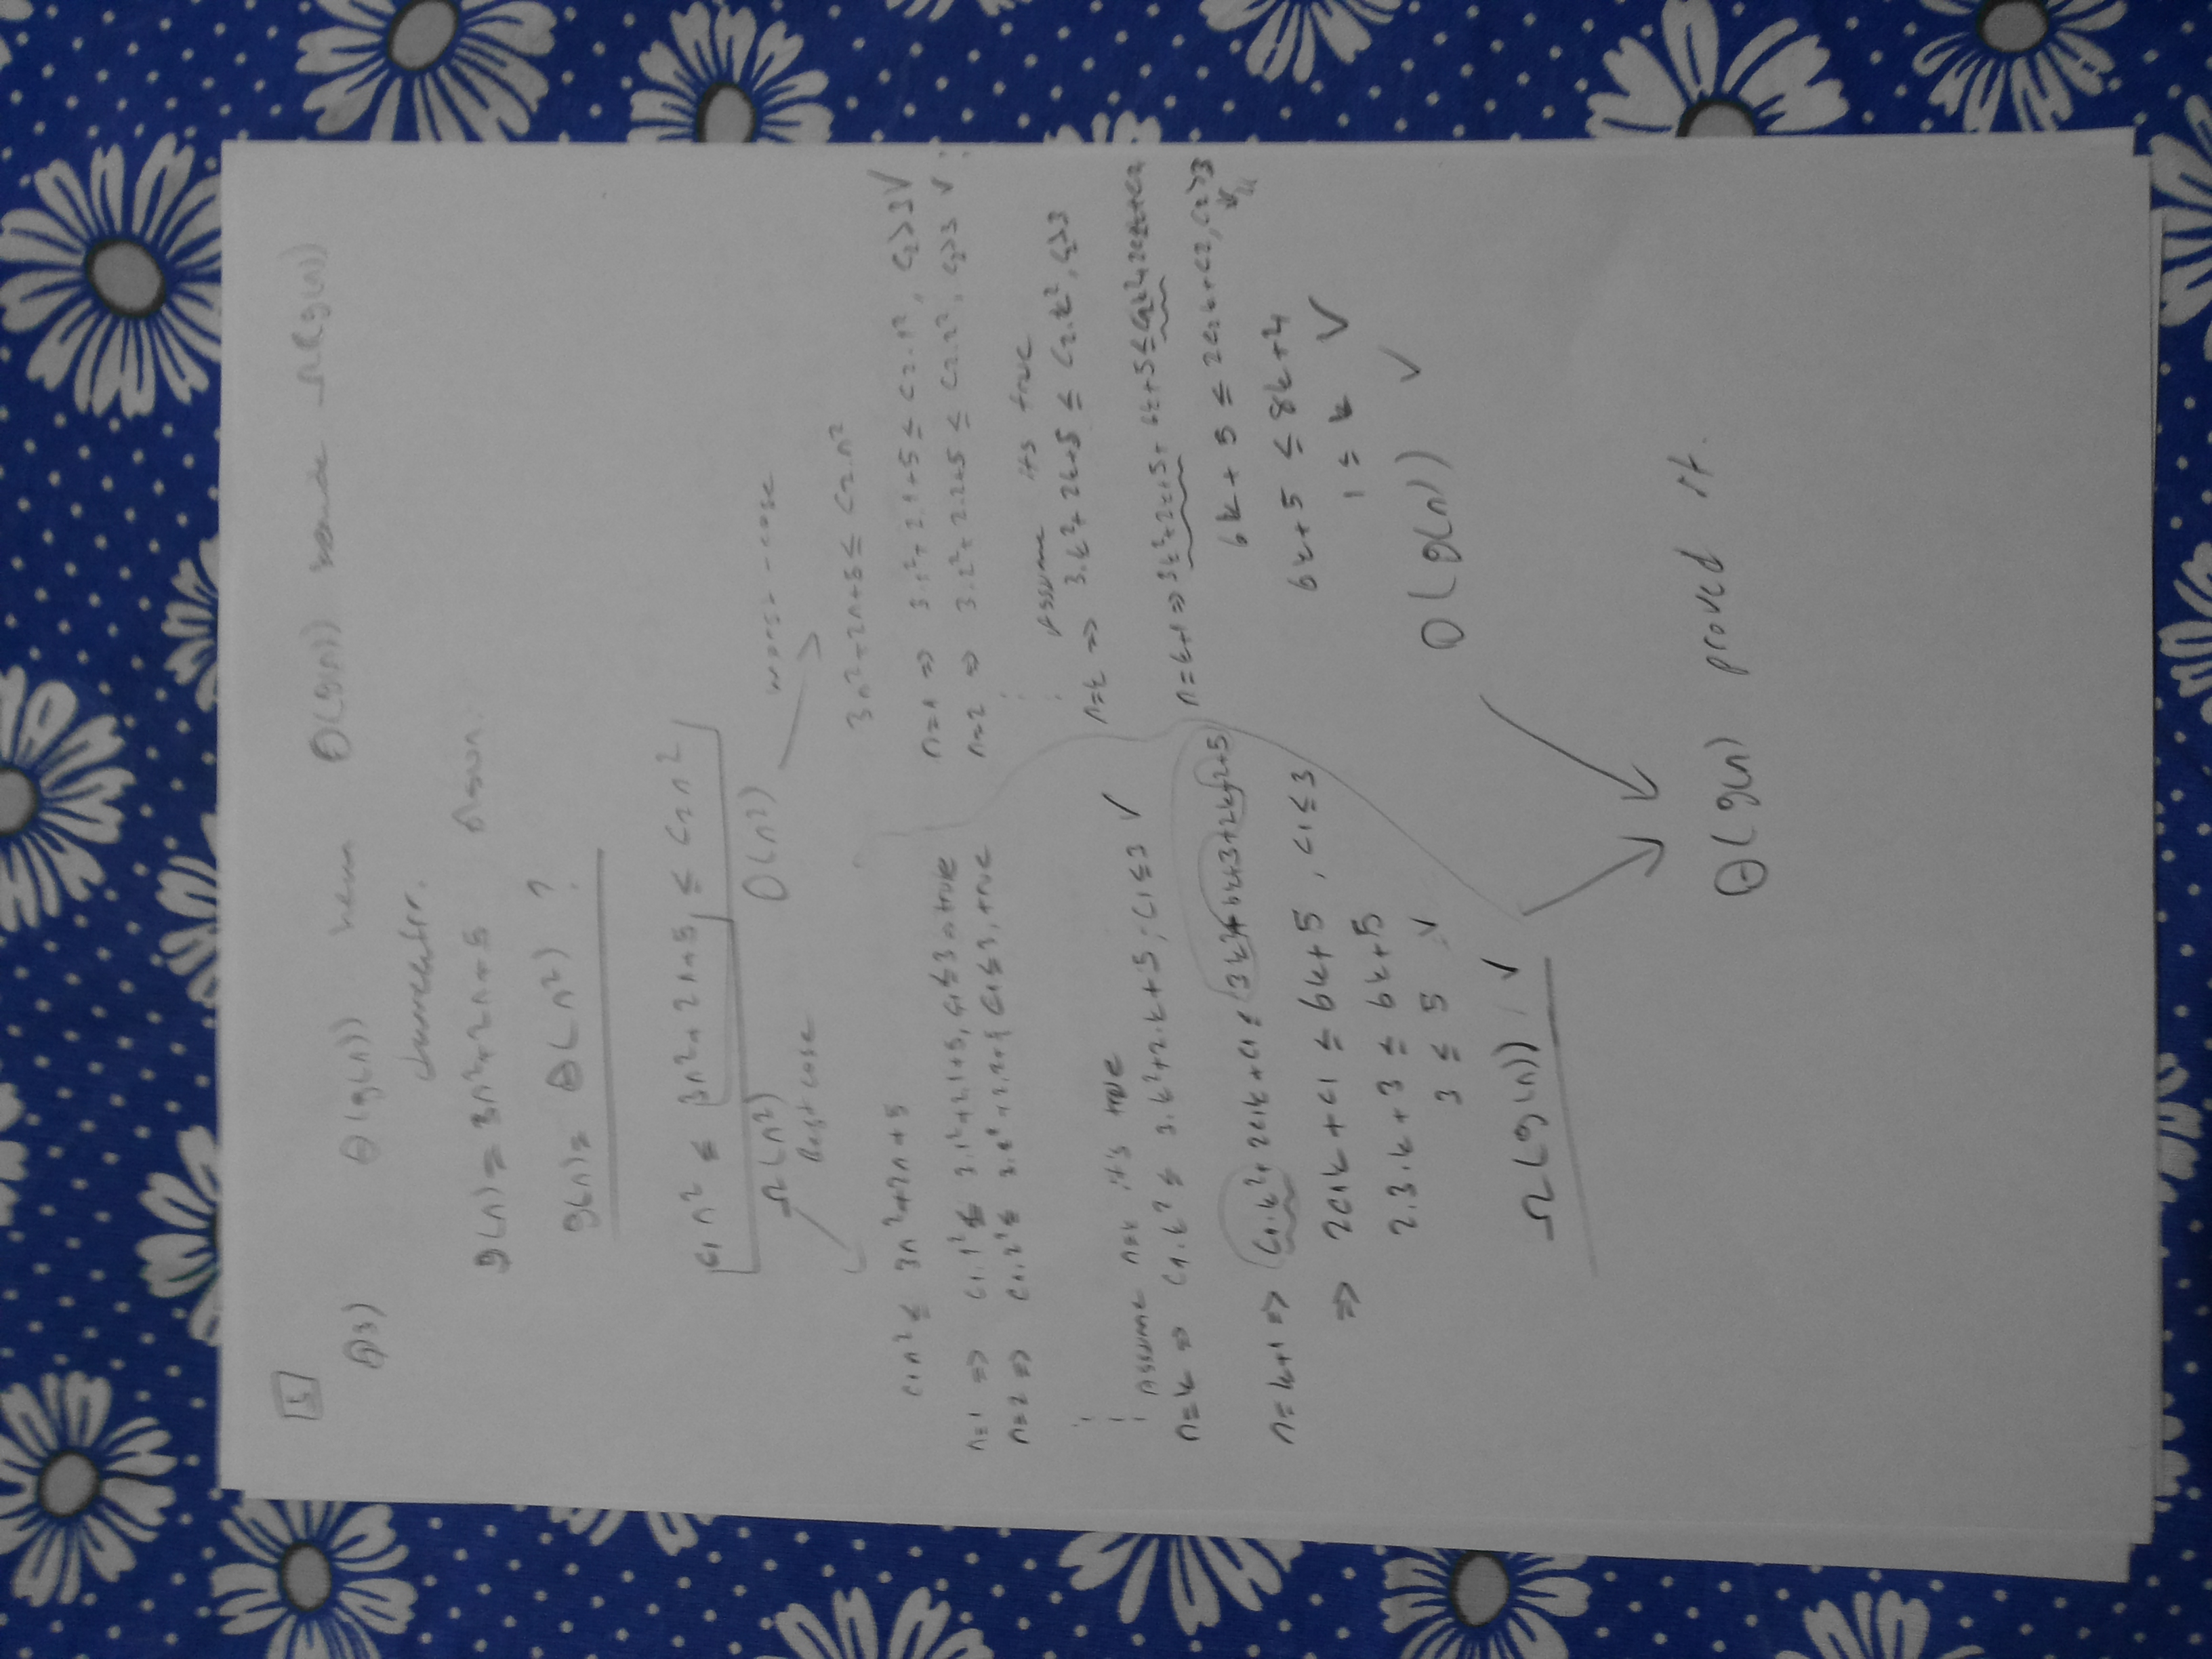 5
Q3) Θ(g(n)) hem O(g(n)) hemde Ω(g(n))
demektir.
g(n) = 3n²+2n+5 olsun.
g(n) = Θ(n²) ?
c₁n² ≤ 3n²+2n+5 ≤ c₂n²
Ω(n²) O(n²) worst-case
Best case
c₁n² ≤ 3n²+2n+5
n=1 => c₁.1² ≤ 3.1²+2.1+5, c₁≤3 → true
n=2 => c₁.2² ≤ 3.2²+2.2+5 c₁≤3, true
Assume n=k it's true
n=k => c₁.k² ≤ 3.k²+2.k+5, c₁≤3 ✓
n=k+1 => c₁.k²+2c₁k+c₁ ≤ 3k²+6k+3+2k+2+5
=> 2c₁k+c₁ ≤ 6k+5, c₁≤3
2.3.k+3 ≤ 6k+5
3 ≤ 5 ✓
Ω(g(n)) ✓
3n²+2n+5 ≤ c₂.n²
n=1 => 3.1²+2.1+5 ≤ c₂.1², c₂>3 ✓
n=2 => 3.2²+2.2+5 ≤ c₂.2², c₂>3 ✓
Assume its true
n=k => 3.k²+2k+5 ≤ c₂.k², c₂>3
n=k+1 => 3k²+2k+5+6k+5 ≤ c₂k²+2c₂k+c₂
6k+5 ≤ 2c₂k+c₂, c₂>3
6k+5 ≤ 8k+4
1 ≤ k ✓
O(g(n)) ✓
Θ(g(n) proved it.